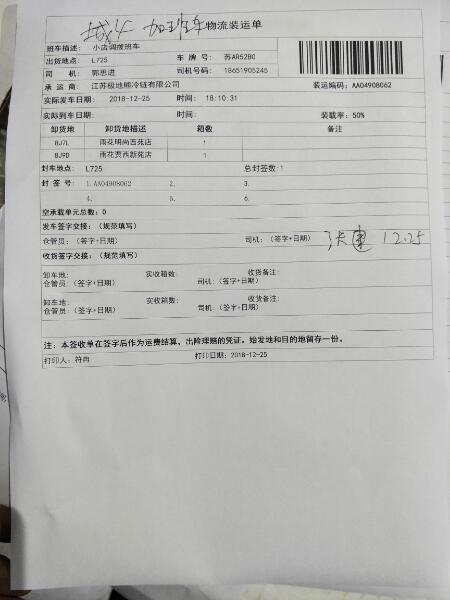 加班车物流装运单
班车描述: 小店调拨班车
出货地点: L725 车 牌 号: 苏AR52B0
司 机: 郭思进 司机号码: 18651905245
承 运 商: 江苏极地熊冷链有限公司 装运编码: AA04908062
实际发车日期: 2018-12-25 时间: 18:10:31
实际到车日期: 时间: 装载率: 50%
卸货地 卸货地描述 箱数 备注
BJ7L 雨花明尚西苑店 1
BJ9D 雨花贾西新苑店 1
封车地点: L725 总封签数:1
封 签 号: 1.AA04908062 2. 3.
4. 5. 6.
空承载单元总数: 0
发车签字交接: (规范填写)
仓管员: (签字+日期) 司机: (签字+日期) 12.25
收货签字交接: (规范填写)
卸车地: 实收箱数: 收货备注:
仓管员: (签字+日期) 司机: (签字+日期)
卸车地: 实收箱数: 收货备注:
仓管员: (签字+日期) 司机: (签字+日期)
注: 本签收单在签字后作为运费结算、出险理赔的凭证。始发地和目的地留存一份。
打印人: 符冉 打印日期: 2018-12-25